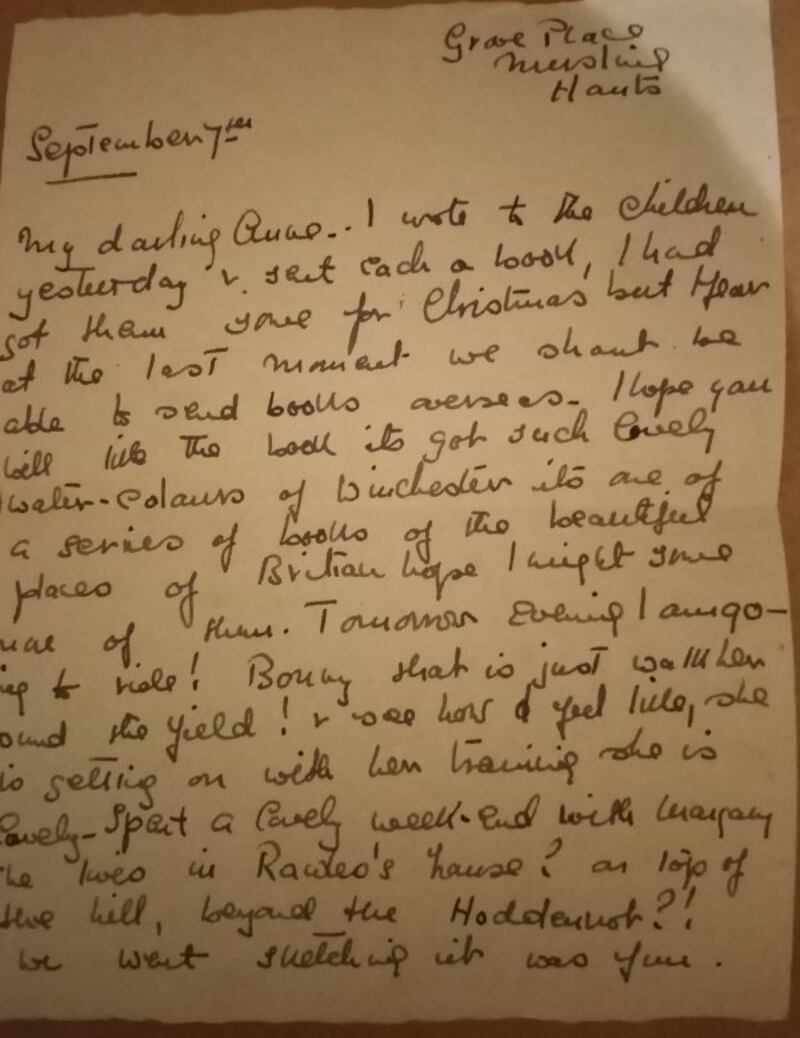 Grove Place
Nursling
Hants
September 7th
My darling Anne.. I wrote to the children
yesterday & sent each a book, I had
got them some for Christmas but hear
at the last moment we shant be
able to send books overseas - I hope you
will like the book its got such lovely
water-colours of Winchester its one of
a series of books of the beautiful
places of Britian hope I might some
more of them. Tomorrow Evening I am go-
ing to ride! Bonny that is just walk her
round the field! & see how I feel like, she
is getting on with her training she is
lovely - Spent a lovely week-end with Margary
she lives in house? on top of
the hill, beyond the ?!
we went sketching it was fun.